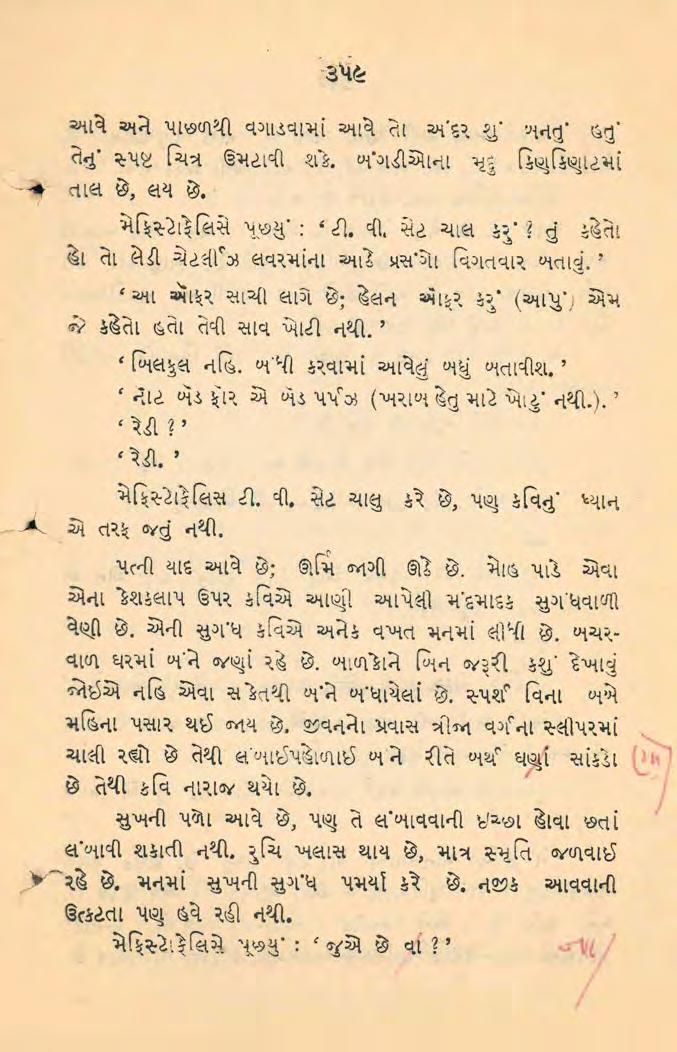 ૩૫૯
આવે અને પાછળથી વગાડવામાં આવે તો અંદર શું બનતું હતું
તેનું સ્પષ્ટ ચિત્ર ઉમટાવી શકે. બંગડીઓના મૃદુ કિણકિણાટમાં
તાલ છે, લય છે.
મેફિસ્ટોફેલિસે પૂછયું : ‘ ટી. વી. સેટ ચાલ કરું ? તું કહેતો
હો તો લેડી ચેટર્લીઝ લવરમાંના આઠે પ્રસંગો વિગતવાર બતાવું. ’
‘ આ ઑફર સાચી લાગે છે; હેલન ઑફર કરું (આપું) એમ
જે કહેતો હતો તેવી સાવ ખોટી નથી. ’
‘ બિલકુલ નહિ. બંધી કરવામાં આવેલું બધું બતાવીશ. ’
‘ નૉટ બૅડ ફૉર એ બૅડ પર્પઝ (ખરાબ હેતુ માટે ખોટું નથી.). ’
‘ રેડી ? ’
‘ રેડી. ’
મેફિસ્ટોફેલિસ ટી. વી. સેટ ચાલુ કરે છે, પણ કવિનું ધ્યાન
એ તરફ જતું નથી.
પત્ની યાદ આવે છે; ઊર્મિ જાગી ઊઠે છે. મોહ પાડે એવા
એના કેશકલાપ ઉપર કવિએ આણી આપેલી મંદમાદક સુગંધવાળી
વેણી છે. એની સુગંધ કવિએ અનેક વખત મનમાં લીધી છે. બચર-
વાળ ઘરમાં બંને જણાં રહે છે. બાળકોને બિન જરૂરી કશું દેખાવું
જોઈએ નહિ એવા સંકેતથી બંને બંધાયેલાં છે. સ્પર્શ વિના બબે
મહિના પસાર થઈ જાય છે. જીવનનો પ્રવાસ ત્રીજા વર્ગના સ્લીપરમાં
ચાલી રહ્યો છે તેથી લંબાઈપહોળાઈ બંને રીતે બર્થ ઘણાં સાંકડો
છે તેથી કવિ નારાજ થયો છે.
સુખની પળો આવે છે, પણ તે લંબાવવાની ઇચ્છા હોવા છતાં
લંબાવી શકાતી નથી. રુચિ ખલાસ થાય છે, માત્ર સ્મૃતિ જળવાઈ
રહે છે. મનમાં સુખની સુગંધ પમર્યા કરે છે. નજીક આવવાની
ઉત્કટતા પણ હવે રહી નથી.
મેફિસ્ટોફેલિસે પૂછયું : ‘ જુએ છે વાં ? ’